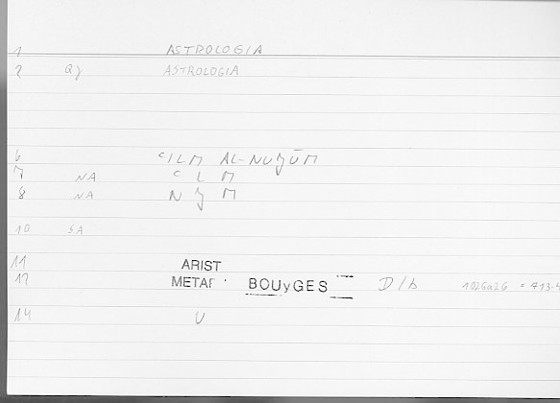 1 ASTROLOGIA
2 Qj ASTROLOGIA
6 ʿILM AL-NUǦŪM
7 NA ʿ L M
8 NA N ǧ M
10 SA
11 ARIST
12 METAF BOUyGES D/b 1026a26 = 713.4
14 V